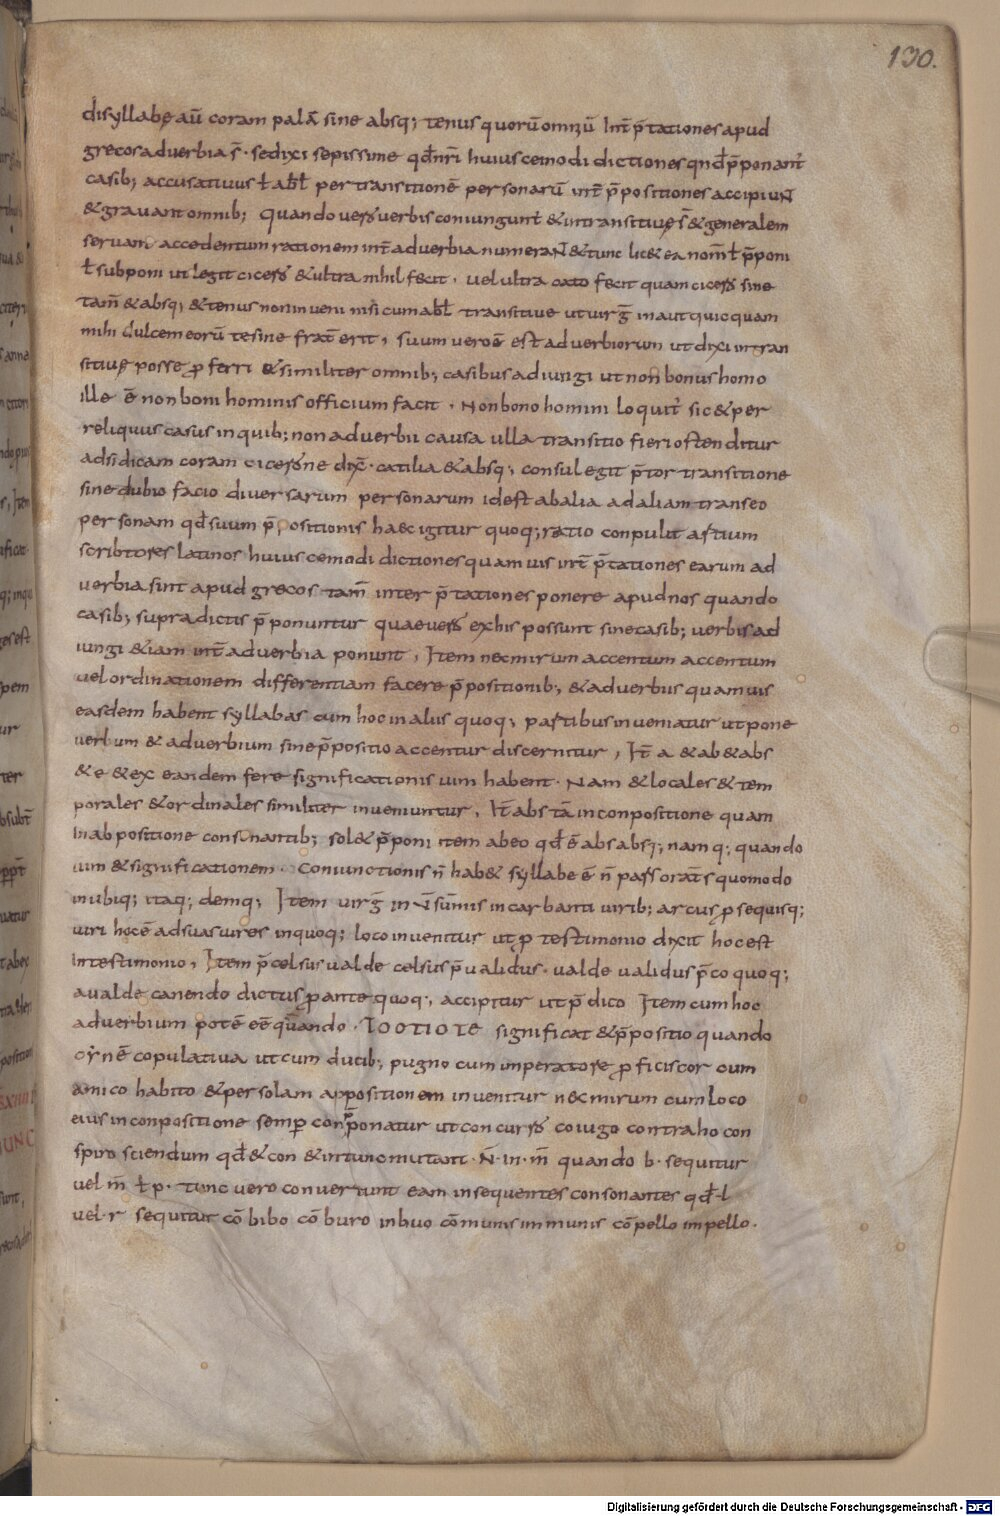 130.
disyllabę aū coram palā sine absq; tenus quorū omniū Int̄ p̄tationes apud
grecos adverbia s̄ · sed ixi sepissime qđ nr̄i huiuscemodi dictiones qn̄do p̄ponant᷑
casib; accusativus ł abł per transitionē personarū int̄ p̄positiones accipiuN̄
& gravant omnib; quando vero verbis coniungunt᷑ & intransitivę s̄ & generalem
servam accedentum rationem int̄ adverbia numeraN̄ & tunc lic& ea nom̄ ł p̄poni
ł subponi ut legit cicero & ultra nihil fecit, vel ultra cato fecit quam cicero sine
tam̄ & absq; & tenus non inveni nisi cum abł transitive ut virḡ in aut quicquam
mihi dulce meorū te sine frat̄ erit, suum vero ē est adverbiorum ut dixi intran
sitivę posse ꝓferri & similiter omnib; casibus adiungi ut non bonus homo
ille ē non boni hominis officium facit · Non bono homini loquit᷑ sic & per
reliquus casus in quib; non adverbii causa ulla transitio fieri ostenditur
adsi dicam coram cicerone dix̄ · catilia & absq; consul egit p̄tor transitione
sine dubio facio diversarum personarum id est ab alia ad aliam transeo
personam qđ suum p̄positionis haec igitur quoq; ratio conpulit artium
scribtores latinos huiuscemodi dictiones quamvis int̄ p̄tationes earum ad
verbia sint apud grecos tam̄ inter p̄tationes ponere apud nos quando
casib; supradictis p̄ponuntur quae vero ex his possunt sine casib; verbis ad
iungi & iam int̄ adverbia ponunt, Item nec mirum accentum accentum
vel ordinationem differentiam facere p̄positionib; & adverbiis quamvis
easdem habent syllabas cum hoc in aliis quoq; partibus inveniatur ut pone
verbum & adverbium sine p̄positio accentur discernitur, It̄ a & ab & abs
& e & ex eandem fere significationis vim habent · Nam & locales & tem
porales & ordinales similiter inveniuntur, It̄ abs tā in conpositione quam
in abpositione consonantib; sol& p̄poni item abeo qđ ē abs absq; namq; quando
vim & significationem · Coniunctionis n̄ hab& syllabe ē n̄ pars orat̄s quomodo
in ubiq; itaq; deniq; Item virḡ in v̄ sum̄is in carbanti virib; arcus ꝓsequisq;
viri hoc ē ad suas vires inquoq; loco invenitur ut ꝓ testimonio dixit hoc est
in testimonio, Item p̄celsus valde celsus p̄validus · valde validus p̄co quoq;
a valde canendo dictus ꝓ ante quoq; accipitur ut p̄dico Item cum hoc
adverbium potē eē quando · ΤΟΟΤΙΟΤΕ significat & p̄positio quando
copulativa ut cum dutib; pugno cum imperatore ꝓficiscor cum
amico habito & per solam appositionem invenitur nec mirum cum loco
eius in conpositione semꝑ con p̄ponatur ut concurro coiugo contraho con
spiro sciendum qđ & con & in tunc mutant · N̄ · in · m̄ quando b · sequitur
vel m̄ ł p · tunc vero convertunt eam in sequentes consonantes qđ · l
vel · r sequitur cō bibo cō buro inbuo cōmunis immunis cōpello impello.
Digitalisierung gefördert durch die Deutsche Forschungsgemeinschaft - DFG